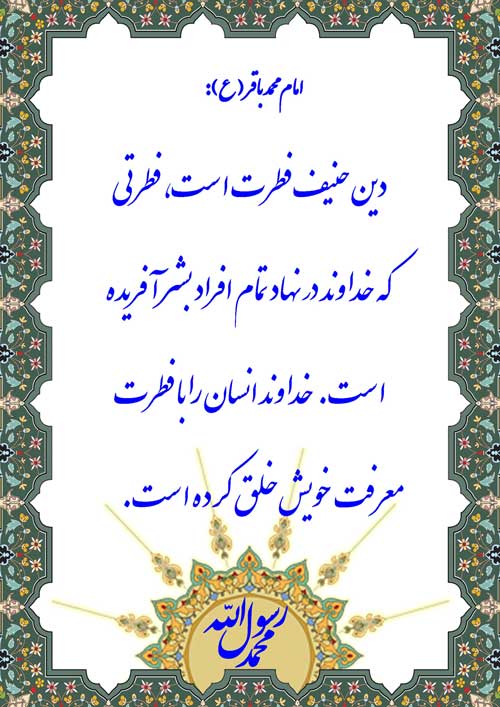 امام محمد باقر (ع):
دین حنیف فطرت است، فطرتی
که خداوند در نهاد تمام افراد بشر آفریده
است. خداوند انسان را با فطرت
معرفت خویش خلق کرده است.
محمد رسول الله